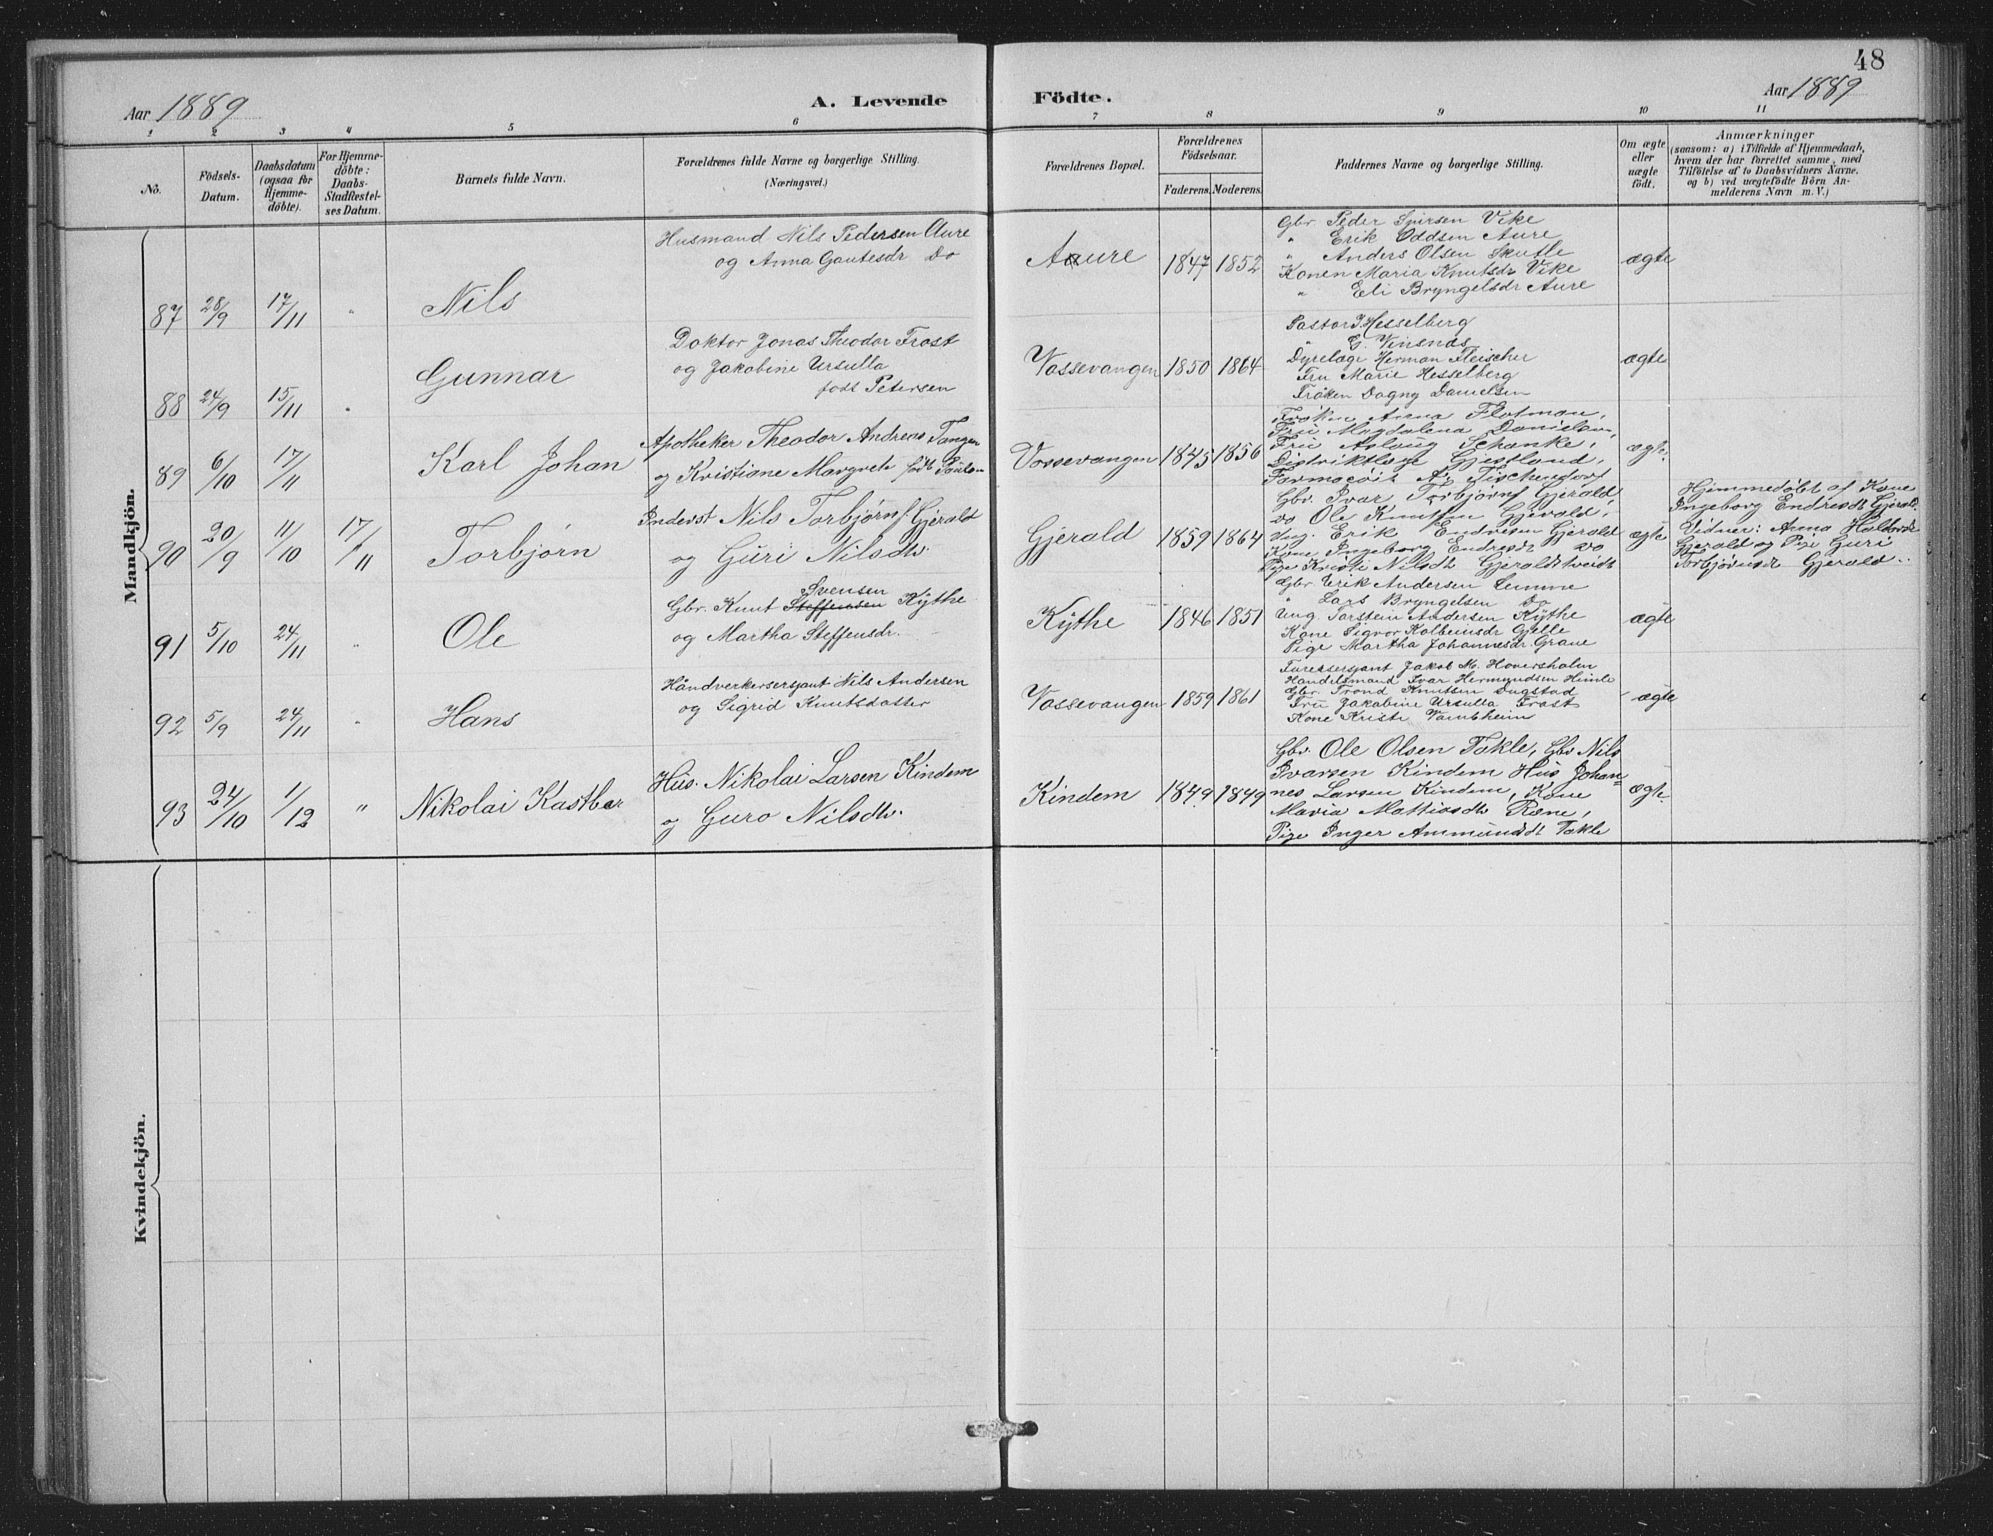 48
Aar 1889
A. Levende
Födte.
Aar 1889
1
2
3
4
5
6
7
8
9
10
11
No.
Födsels-
Datum.
Daabsdatum
(ogsaa for
Hjemme-
döbte).
For Hjemme-
döbte:
Daabs-
Stadfæstel-
ses Datum.
Barnets fulde Navn.
Forældrenes fulde Navne og borgerlige Stilling.
(Næringsvei.)
Forældrenes Bopæl.
Forældrenes
Födselsaar.
Faderens.
Moderens.
Faddernes Navne og borgerlige Stilling.
Om ægte
eller
uægte
født.
Anmærkninger
(saasom: a) i Tilfælde af Hjemmedaab,
hvem der har forrettet samme, med
Tilföielse af to Daabsvidners Navne.
og b) ved uægtefödte Börn An-
melderens Navn m. V.)
Mandkjön.
87
28/9
17/11
"
Nils
Husmand Nils Pedersen Aure
og Anna Gautesdr Do
Aure
1847
1852
Gbr. Peder Sjursen Vike
" Erik Oddsen Aure
" Anders Olsen Skutle
Konen Maria Knutsdr Vike
" Eli Bryngelsdr Aure
ægte
88
24/9
15/11
"
Gunnar
Doktor Jonas Theodor Frost
og Jakobine Ursulla
født Petersen
Vossevangen
1850
1864
Pastor J. Hesselberg
" G. Vinsnes
Dyrelæge Herman Fleischer
Fru Marie Hesselberg
Frøken Dagny Danielsen
ægte
89
6/10
17/11
Karl Johan
Apotheker Theodor Andreas Tangen
og Kristiane Margrete født
Vossevangen
1845
1856
Frøken Anna Flotman,
Fru Magdalena Danielsen,
Fru Aslaug Schanke,
Distriktlæge Gjestland,
Farmaceut A. Tischendorf
ægte.
90
20/9
11/10
17/11
Torbjørn
Inderst Nils Torbjørns. Gjerald
og Guri Nilsdtr.
Gjerald
1859
1864
Gbr. Ivar Torbjørns Gjerald,
do Ole Knutsen Gjerald,
Ung. Erik Endresen Gjerald
Kone Ingeborg Endresdt do
Pige Kristi Nilsdt Gjeraldstveidt
ægte
Hjemmedøbt af Kone
Ingeborg Endresdt Gjerald.
Vidner: Anna
Gjerald og Pige Guri
Torbjørnsdt Gjerald.
91
5/10
24/11
"
Ole
Svensen
Gbr. Knut Steffensen Kÿthe
og Martha Steffensdr.
Kÿthe
1846
1851
Gbr Erik Andersen Lemme
" Lars Bryngelsen Do
Ung. Torstein Andersen Kÿthe
Kone Sigvor Kolbeinsdr Gjelle
Pige Martha Johannesdr. Grave
ægte
92
5/9
24/11
"
Hans
Håndverkersersjant Nils Andersen
og Sigrid Knutsdatter
Vossevangen
1859
1861
Furersersjant Jakob M. Hoversholm
Handelsmand Ivar Hermundsen Himle
Gbr. Trond Knutsen Dugstad
Fru Jakobine Ursulla Frost
Kone Kristi Vambheim
ægte
93
24/10
1/12
"
Nikolai Kastbar
Hus. Nikolai Larsen Kindem
og Guro Nilsdtr.
Kindem
1849
1849
Gbr. Ole Olsen Takle, Gbr Nils
Ivarsen Kindem Hus Johan-
nes Larsen Kindem, Kone
Maria Mattiasdtr Ræne,
Pige Inger Ammundsdt Takle
ægte.
Kvindekjön.